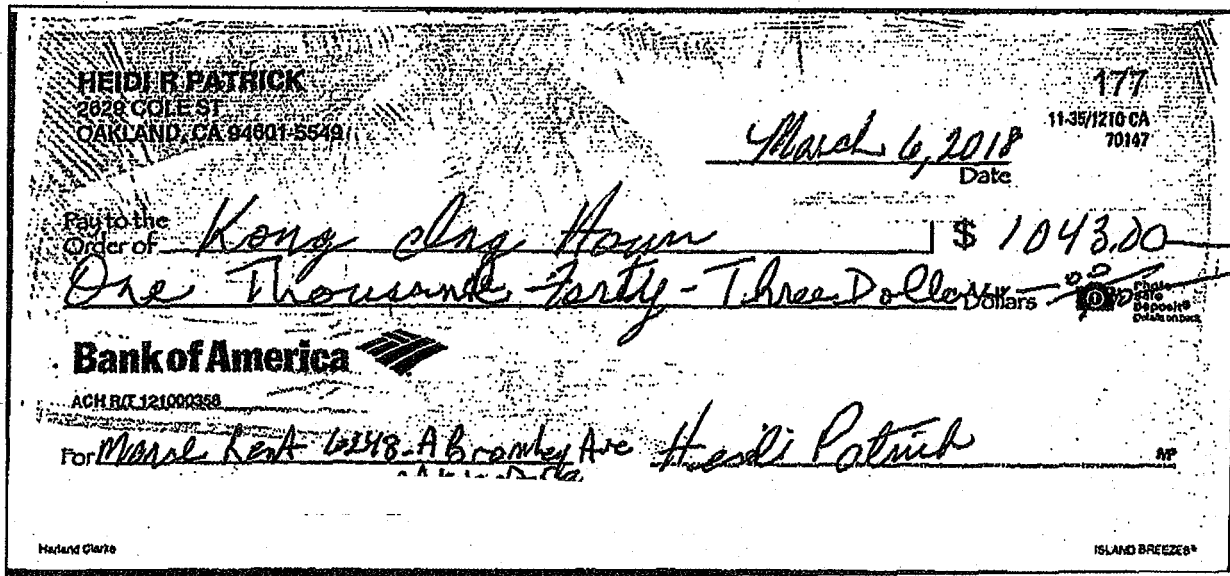 HEIDI R PATRICK
2629 COLE ST
OAKLAND, CA 94601-5549
177
11-35/1210 CA
70147
March 6, 2018
Date
Pay to the
Order of Kong Ing Houn $ 1043.00
One Thousand Forty-Three Dollars Dollars
Photo
Safe
Deposit®
Details on back
Bank of America
ACH R/T 121000358
For Rent 6348-A Bromley Ave Heidi Patrick
MP
Harland Clarke
ISLAND BREEZES®